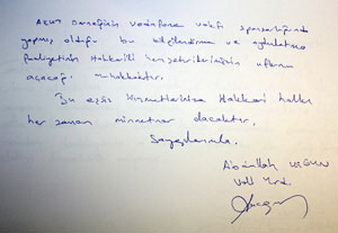 AKUT Derneğinin Vodafone vakfı sponsorluğunda
yapmış olduğu bu bilgilendirme ve aydınlatma
faaliyetinin Hakkarili hemşehrilerimizin ufkunu
açacağı muhakkaktır.
Bu eşsiz hizmetlerinize Hakkari halkı
her zaman minnettar olacaktır.
Saygılarımla.
Abdullah
Vali Yrd.